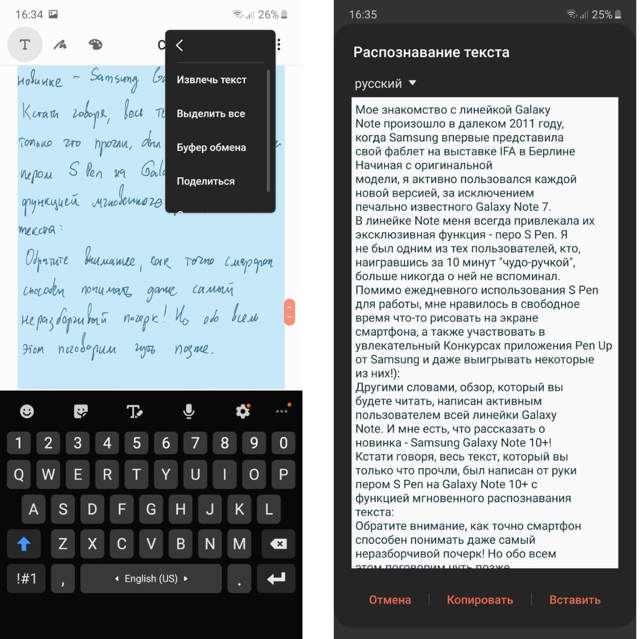 16:34
26%
T
Извлечь текст
Выделить все
Буфер обмена
Поделиться
новинке - Samsung Ga
Кстати говоря, весь те
только что прочли, был
пером S Pen на Gala
функцией мгновенного
текста:
Обратите внимание, как точно смартфон
способен понимать даже самый
неразборчивый почерк! Но обо всем
этом поговорим чуть позже.
1 2 3 4 5 6 7 8 9 0
Q W E R T Y U I O P
A S D F G H J K L
Z X C V B N M
!#1 , English (US) .
16:35
25%
Распознавание текста
русский
Мое знакомство с линейкой Galaky
Note произошло в далеком 2011 году,
когда Samsung впервые представила
свой фаблет на выставке IFA в Берлине
Начиная с оригинальной
модели, я активно пользовался каждой
новой версией, за исключением
печально известного Galaxy Note 7.
В линейке Note меня всегда привлекала их
эксклюзивная функция - перо S Pen. Я
не был одним из тех пользователей, кто,
наигравшись за 10 минут "чудо-ручкой",
больше никогда о ней не вспоминал.
Помимо ежедневного использования S Pen
для работы, мне нравилось в свободное
время что-то рисовать на экране
смартфона, а также участвовать в
увлекательный Конкурсах приложения Pen Up
от Samsung и даже выигрывать некоторые
из них!):
Другими словами, обзор, который вы
будете читать, написан активным
пользователем всей линейки Galaxy
Note. И мне есть, что рассказать о
новинка - Samsung Galaxy Note 10+!
Кстати говоря, весь текст, который вы
только что прочли, был написан от руки
пером S Pen на Galaxy Note 10+ с
функцией мгновенного распознавания
текста:
Обратите внимание, как точно смартфон
способен понимать даже самый
неразборчивой почерк! Но обо всем
этом поговорим чуть позже
Отмена
Копировать
Вставить